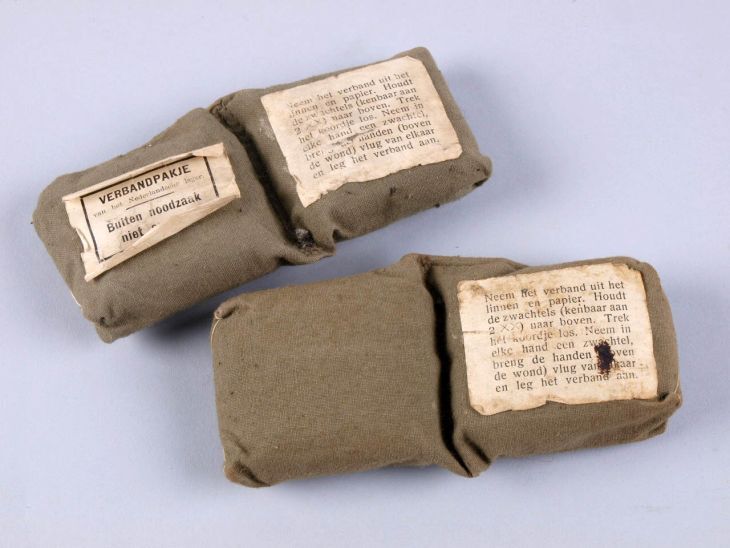 VERBANDPAKJE
van het Nederlandsche leger.
Buiten noodzaak
niet
Neem het verband uit het
linnen en papier. Houdt
de zwachtels (kenbaar aan
2 XX) naar boven. Trek
het koordje los. Neem in
elke hand een zwachtel,
breng de handen (boven
de wond) vlug van elkaar
en leg het verband aan.
Neem het verband uit het
linnen en papier. Houdt
de zwachtels (kenbaar aan
2 XX) naar boven. Trek
het koordje los. Neem in
elke hand een zwachtel,
breng de handen (boven
de wond) vlug van elkaar
en leg het verband aan.